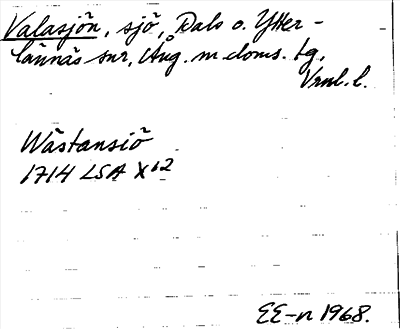 Valasjön, sjö, Dals o. Ytter-
lännäs snr, Ång. m. doms. tg,
Vrnl. l.
Wästansiö
1714 LSA X 62
EE-n 1968.